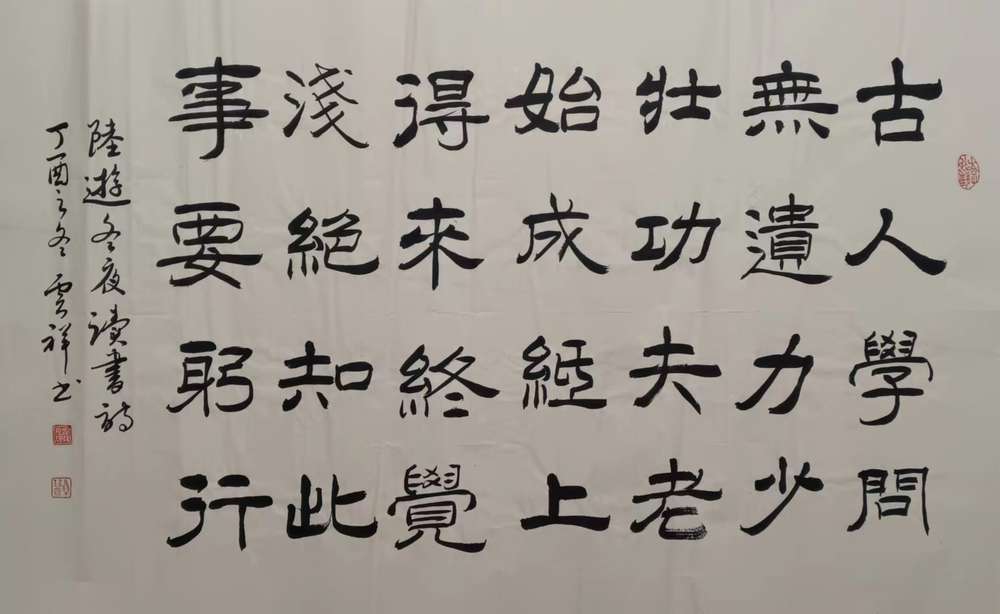 古人學問
無遺力少
壯功夫老
始成紙上
得來終覺
淺絕知此
事要躬行
陸遊冬夜讀書詩
丁酉之冬雲祥书